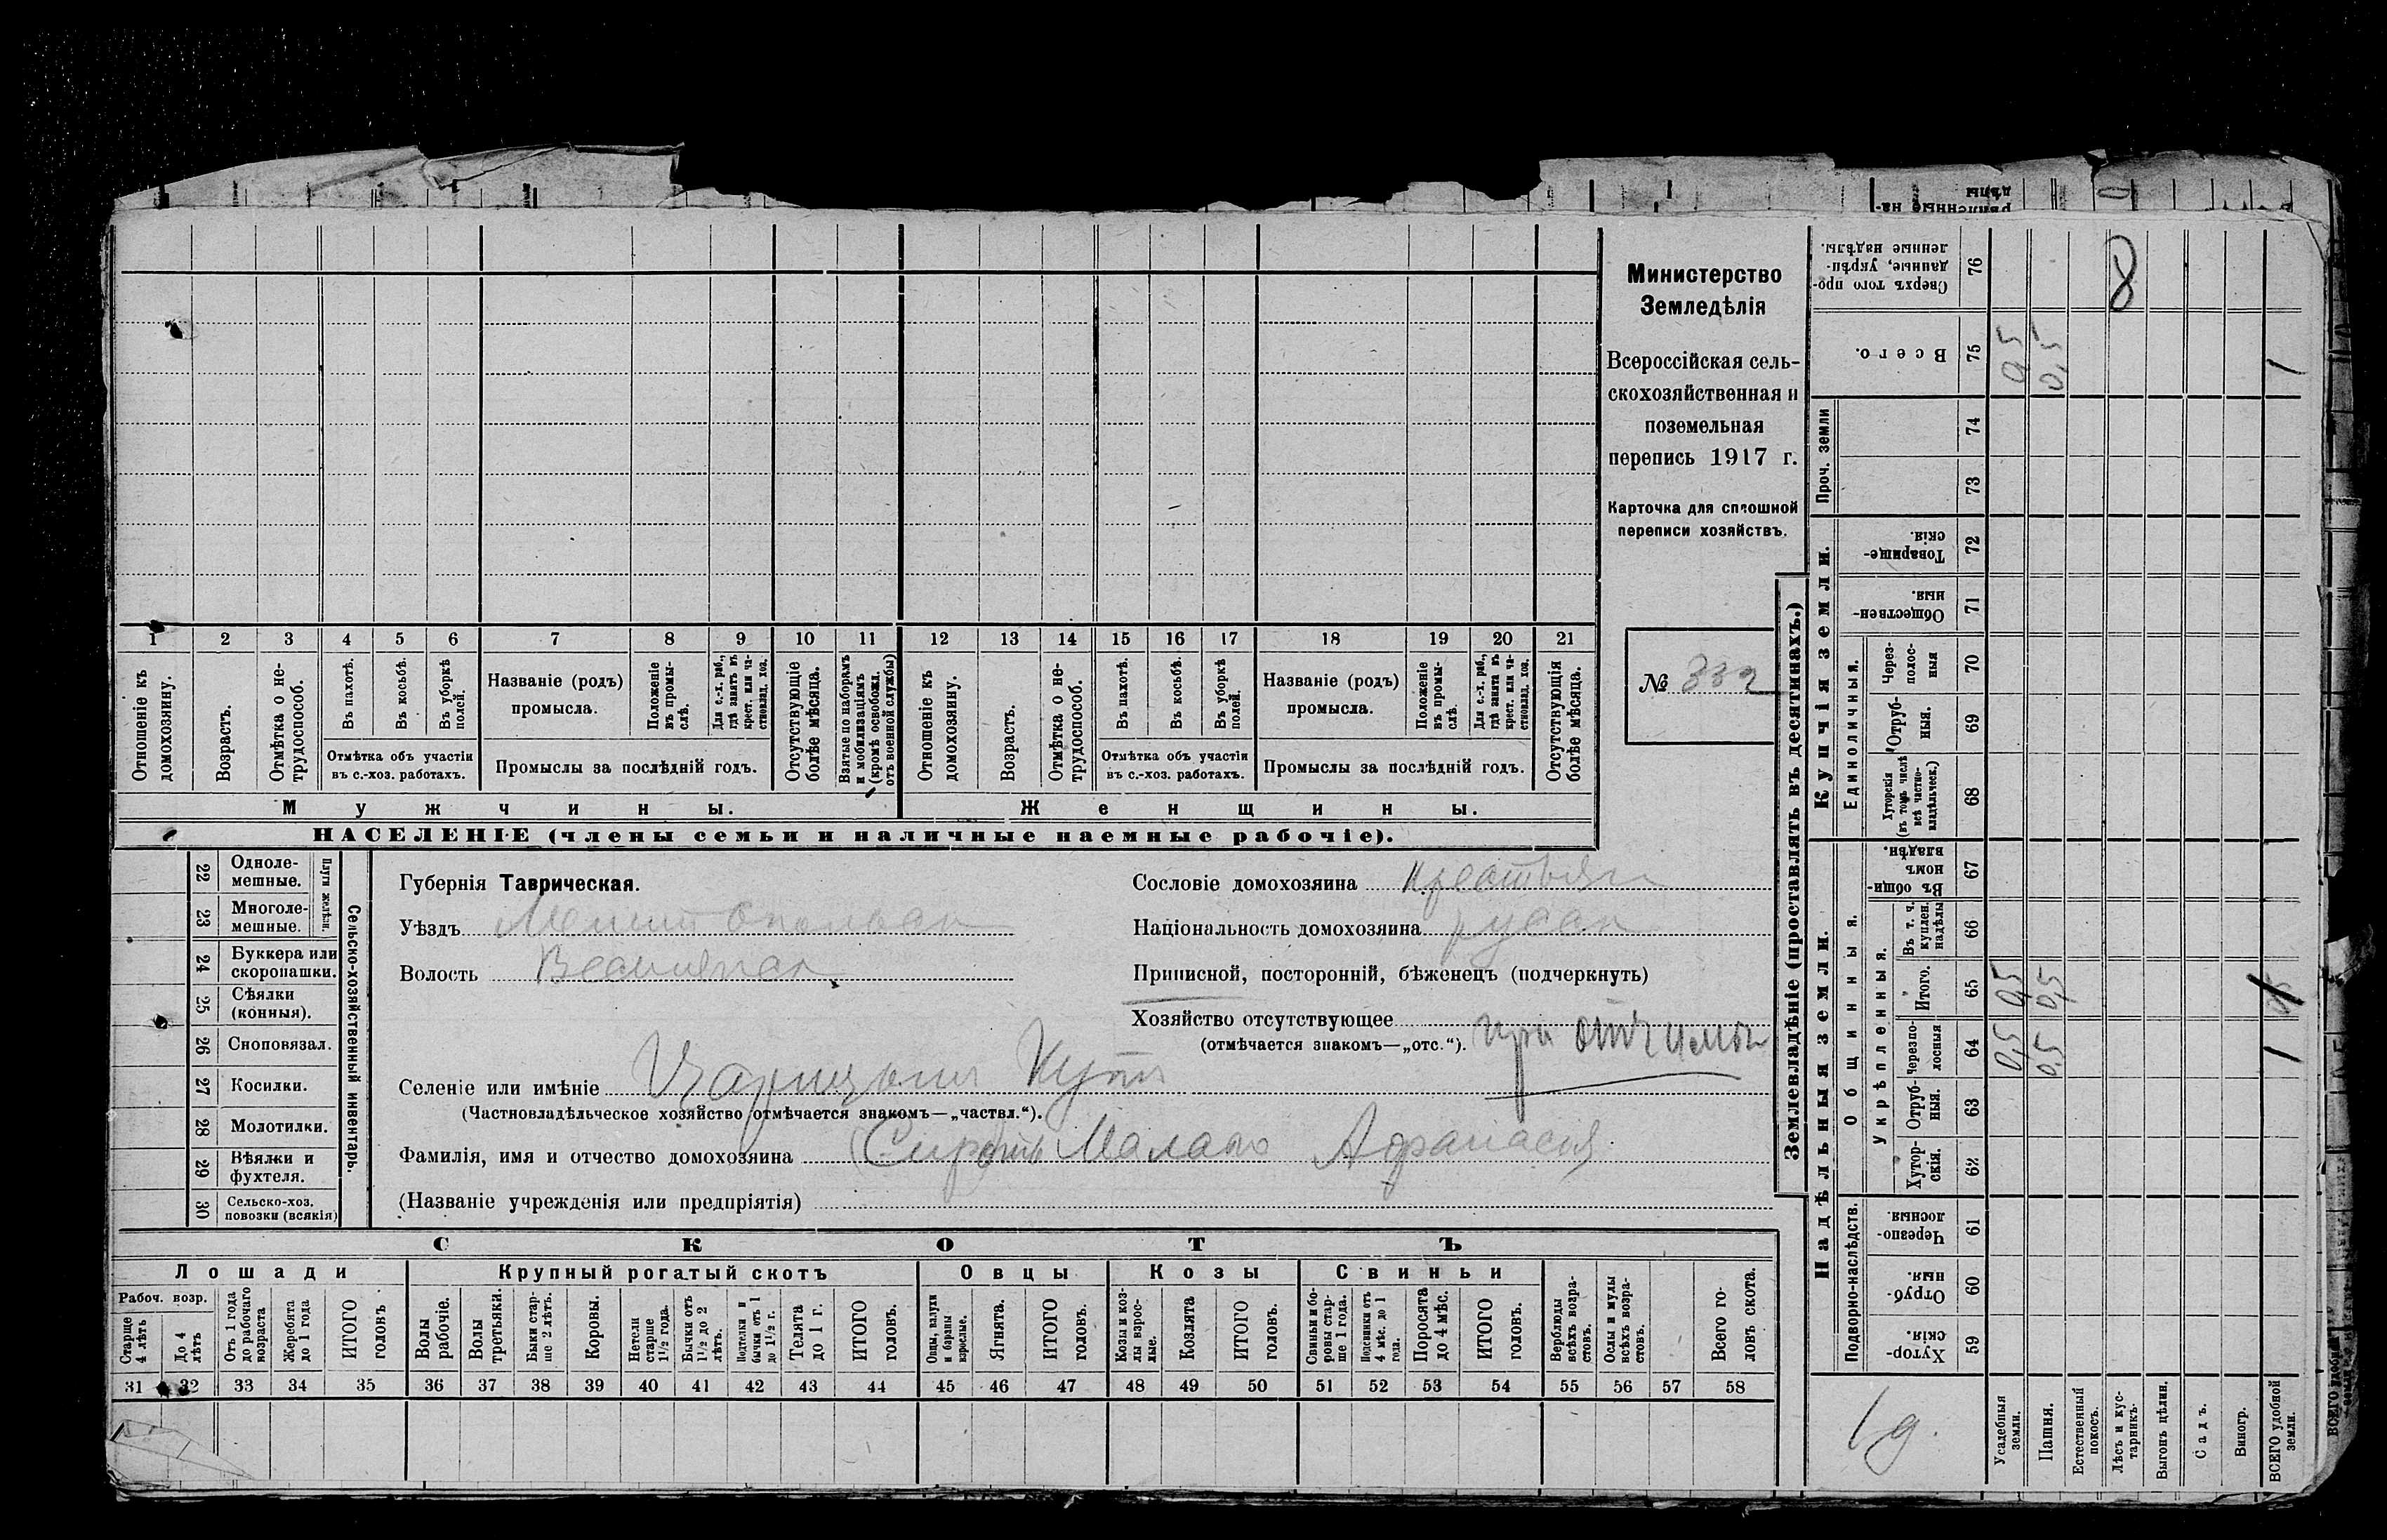 Министерство
Земледѣлія
Всероссійская сель-
скохозяйственная и
поземельная
перепись 1917 г.
Карточка для сплошной
переписи хозяйствъ.
№ 332
1 2 3 4 5 6 7 8 9 10 11 12 13 14 15 16 17 18 19 20 21
Отношеніе къ домохозяину.
Возрастъ.
Отмѣтка о не-трудоспособ.
Въ пахотѣ.
Въ косьбѣ.
Въ уборкѣ полей.
Отмѣтка объ участіи
въ с.-хоз. работахъ.
Названіе (родъ)
промысла.
Положеніе въ промы-слѣ.
Для с.-х. раб., гдѣ занятъ въ крест. или ча-стновлад. хоз.
Промыслы за послѣдній годъ.
Отсутствующіе болѣе мѣсяца.
Взятые по наборамъ и мобилизаціямъ (кромѣ освобожд. отъ военной службы)
Отношеніе къ домохозяину.
Возрастъ.
Отмѣтка о не-трудоспособ.
Въ пахотѣ.
Въ косьбѣ.
Въ уборкѣ полей.
Отмѣтка объ участіи
въ с.-хоз. работахъ.
Названіе (родъ)
промысла.
Положеніе въ промы-слѣ.
Для с.-х. раб., гдѣ занята въ крест. или ча-стновлад. хоз.
Промыслы за послѣдній годъ.
Отсутствующія болѣе мѣсяца.
Мужчины.
Женщины.
НАСЕЛЕНІЕ (члены семьи и наличные наемные рабочіе).
Сельско-хозяйственный инвентарь.
Плуги желѣзн.
22 Одноле-мешные.
23 Многоле-мешные.
24 Буккера или скоропашки.
25 Сѣялки (конныя).
26 Сноповязал.
27 Косилки.
28 Молотилки.
29 Вѣялки и фухтеля.
30 Сельско-хоз. повозки (всякія)
Губернія Таврическая.
Уѣздъ Мелитопольск
Волость Веселянск
Сословіе домохозяина крестьян
Національность домохозяина русск
Приписной, посторонній, бѣженецъ (подчеркнуть)
Хозяйство отсутствующее
(отмѣчается знакомъ—„отс.“). при отчимѣ
Селеніе или имѣніе Царицынъ Кутъ
(Частновладѣльческое хозяйство отмѣчается знакомъ—„частвл.“).
Фамилія, имя и отчество домохозяина Сиротъ Афанасія
(Названіе учрежденія или предпріятія)
СКОТЪ
Лошади
Крупный рогатый скотъ
Овцы
Козы
Свиньи
Рабоч. возр.
Старше 4 лѣтъ
До 4 лѣтъ
Отъ 1 года до рабочаго возраста
Жеребята до 1 года
ИТОГО головъ
Волы рабочіе.
Волы третьяки.
Быки стар-ше 2 лѣтъ.
Коровы.
Нетели старше 1½ года.
Бычки отъ 1½ до 2 лѣтъ.
Подтелки и бычки отъ 1 до 1½ г.
Телята до 1 г.
ИТОГО головъ.
Овцы, валухи и бараны взрослые.
Ягнята.
ИТОГО головъ.
Козы и коз-лы взрос-лые.
Козлята
ИТОГО головъ.
Свиньи и бо-ровы стар-ше 1 года.
Подсвинки отъ 4 мѣс. до 1 года.
Поросята до 4 мѣс.
ИТОГО головъ.
Верблюды всѣхъ возра-стовъ.
Ослы и мулы всѣхъ возра-стовъ.
Всего го-ловъ скота.
31 32 33 34 35 36 37 38 39 40 41 42 43 44 45 46 47 48 49 50 51 52 53 54 55 56 57 58
Землевладѣніе (проставлять въ десятинахъ.)
Надѣльныя земли.
Купчія земли.
Проч. земли
Подворно-наслѣдств.
Общинныя.
Укрѣпленныя.
Единоличныя.
Сверхъ того про-данные, укрѣп-ленные надѣлы. 76 8
Всего. 75 0,5 0,5 1
74
73
Товарище-скія. 72
Обществен-ныя. 71
Через-полос-ныя 70
Отруб-ныя. 69
Хуторскія (въ томъ числѣ всѣ частно-владѣльческ.) 68
Въ общи-номъ владѣн. 67
Въ т. ч. куплен. надѣлы 66
Итого. 65 0,5 0,5
Черезпо-лосныя 64 0,5 0,5 1
Отруб-ныя. 63
Хутор-скія. 62
Черезпо-лосныя. 61
Отруб-ныя. 60
Хутор-скія. 59
Усадебныя земли.
Пашня.
Естественный покосъ.
Лѣсъ и кус-тарникъ.
Выгонъ цѣлин.
Садъ.
Виногр.
ВСЕГО удобной земли.
1 д.